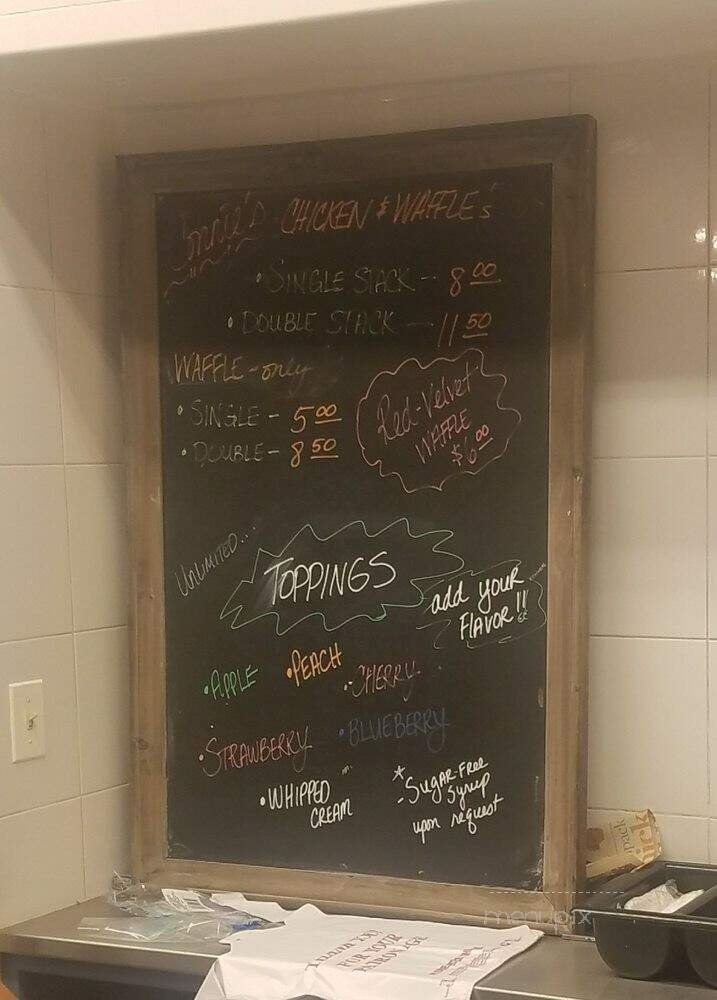 CHICKEN & WAFFLE's
• SINGLE STACK -- 8 00
• DOUBLE STACK -- 11 50
WAFFLE - only
• SINGLE - 5 00
• DOUBLE - 8 50
Red-Velvet
WAFFLE
$6 00
UNLIMITED...
TOPPINGS
add your
FLAVOR!!
• APPLE
• PEACH
• CHERRY
• STRAWBERRY
• BLUEBERRY
• WHIPPED
CREAM
* - SUGAR-FREE
Syrup
upon request
THANK YOU
FOR YOUR
PATRONAGE
menupix